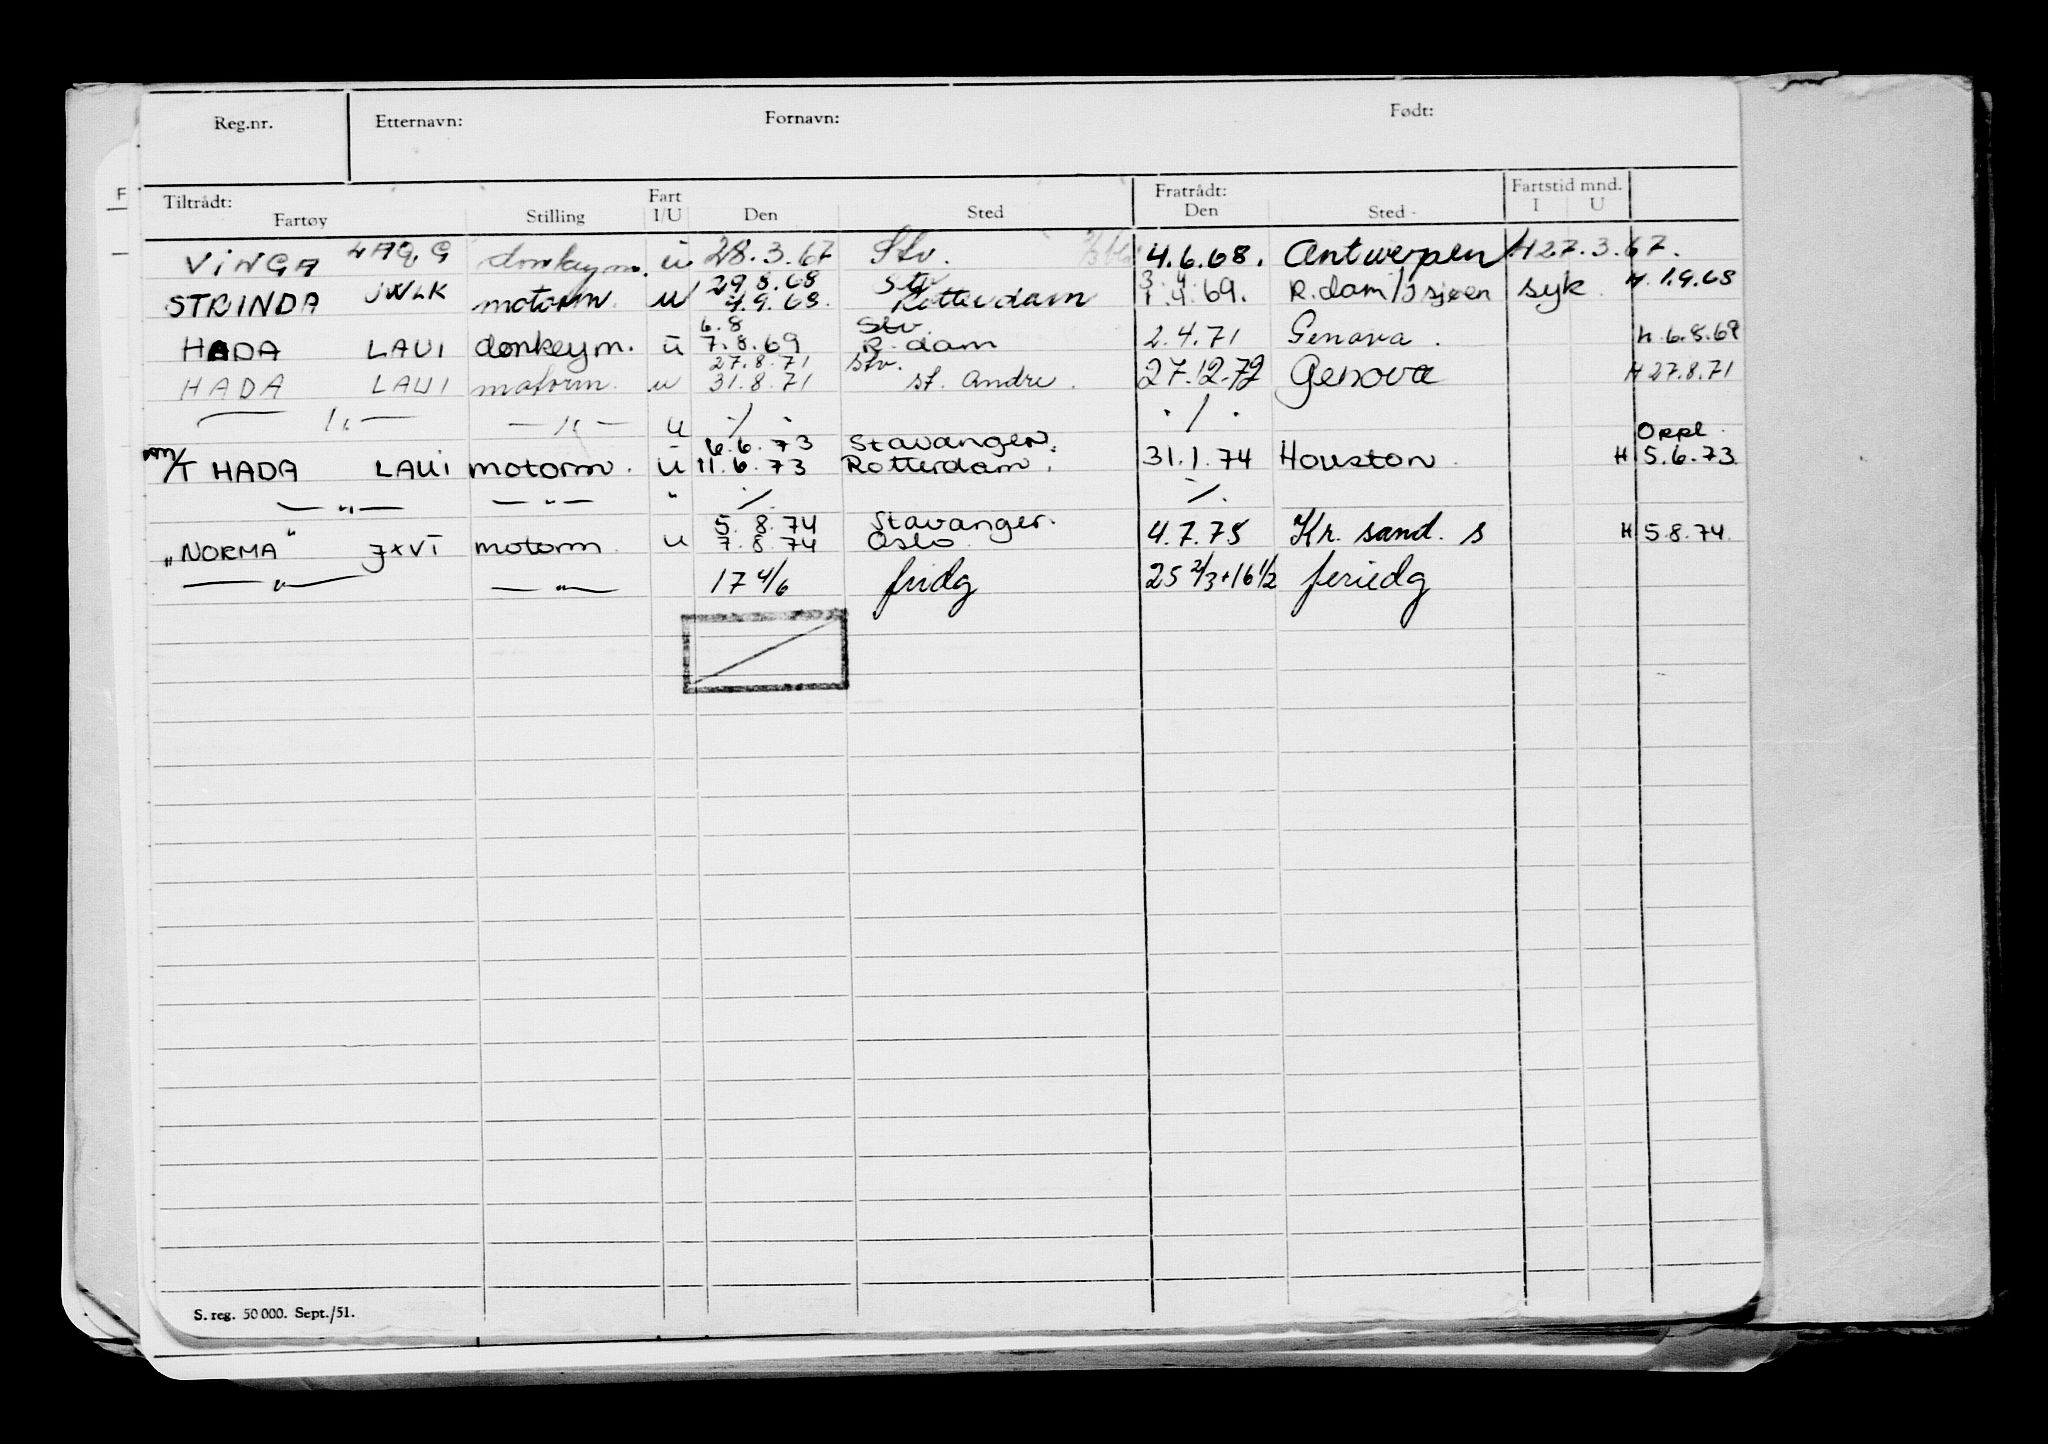 Reg.nr. Etternavn: Fornavn: Født:
Tiltrådt: Fart Fratrådt: Fartstid mnd.
Fartøy Stilling I/U Den Sted Den Sted I U
VINGA LAQG donkeym. u 28.3.67 Stv. 4.6.68. Antwerpen H 27.3.67.
29.8.68 Stv 3.4
STRINDA JWLK motorm. u 4.9.68. Rotterdam 1.4.69. R.dam/Isjøen syk H. 1.9.68
6.8 Stv
HADA LAUI donkeym. u 7.8.69 R.dam 2.4.71 Genova. H. 6.8.69
27.8.71 Stv.
HADA LAUI motorm. u 31.8.71 St. Andre. 27.12.72 Genova H 27.8.71
— " — — " — u ./. ./.
6.6.73 Stavanger. Oppl.
M/T HADA LAUI motorm. u 11.6.73 Rotterdam. 31.1.74 Houston. H 5.6.73
— " — — " — " ./. ./.
5.8.74 Stavanger.
"NORMA" JXVI motorm. u 7.8.74 Oslo 4.7.75 Kr. sand. S H 5.8.74.
— " — — " — 17 4/6 fridg 25 2/3+16 1/2 feriedg
S. reg. 50 000. Sept./51.
F